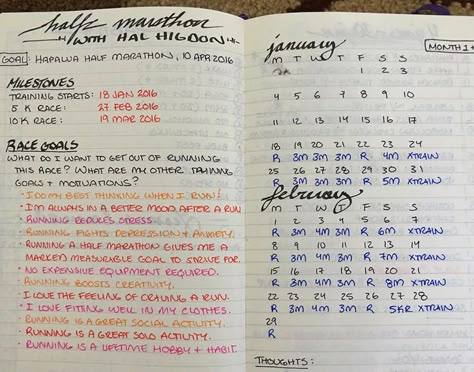 half marathon
WITH HAL HIGDON
GOAL: HAPALUA HALF MARATHON, 10 APR 2016
MILESTONES
TRAINING STARTS: 18 JAN 2016
5 K RACE: 27 FEB 2016
10K RACE: 19 MAR 2016
RACE GOALS
WHAT DO I WANT TO GET OUT OF RUNNING
THIS RACE? WHAT ARE MY OTHER TRAINING
GOALS + MOTIVATIONS?
· I DO MY BEST THINKING WHEN I RUN!
· I'M ALWAYS IN A BETTER MOOD AFTER A RUN
· RUNNING REDUCES STRESS.
· RUNNING FIGHTS DEPRESSION + ANXIETY.
· RUNNING A HALF MARATHON GIVES ME A
MARKED MEASURABLE GOAL TO STRIVE FOR.
· NO EXPENSIVE EQUIPMENT REQUIRED.
· RUNNING BOOSTS CREATIVITY.
· I LOVE THE FEELING OF CRAVING A RUN.
· I LOVE FITTING WELL IN MY CLOTHES.
· RUNNING IS A GREAT SOCIAL ACTIVITY.
· RUNNING IS A GREAT SOLO ACTIVITY.
· RUNNING IS A LIFETIME HOBBY + HABIT.
january
MONTH 1+
M T W T F S S
1 2 3
4 5 6 7 8 9 10
11 12 13 14 15 16 17
18 19 20 21 22 23 24
R 3M 3M 3M R 4M XTRAIN
25 26 27 28 29 30 31
R 3M 3M 3M R 5M XTRAIN
february
M T W T F S S
1 2 3 4 5 6 7
R 3M 4M 3M R 6M XTRAIN
8 9 10 11 12 13 14
R 3M 4M 3M R 7M XTRAIN
15 16 17 18 19 20 21
R 3M 4M 3M R 8M XTRAIN
22 23 24 25 26 27 28
R 3M 4M 3M R 5KR XTRAIN
29
R
THOUGHTS: